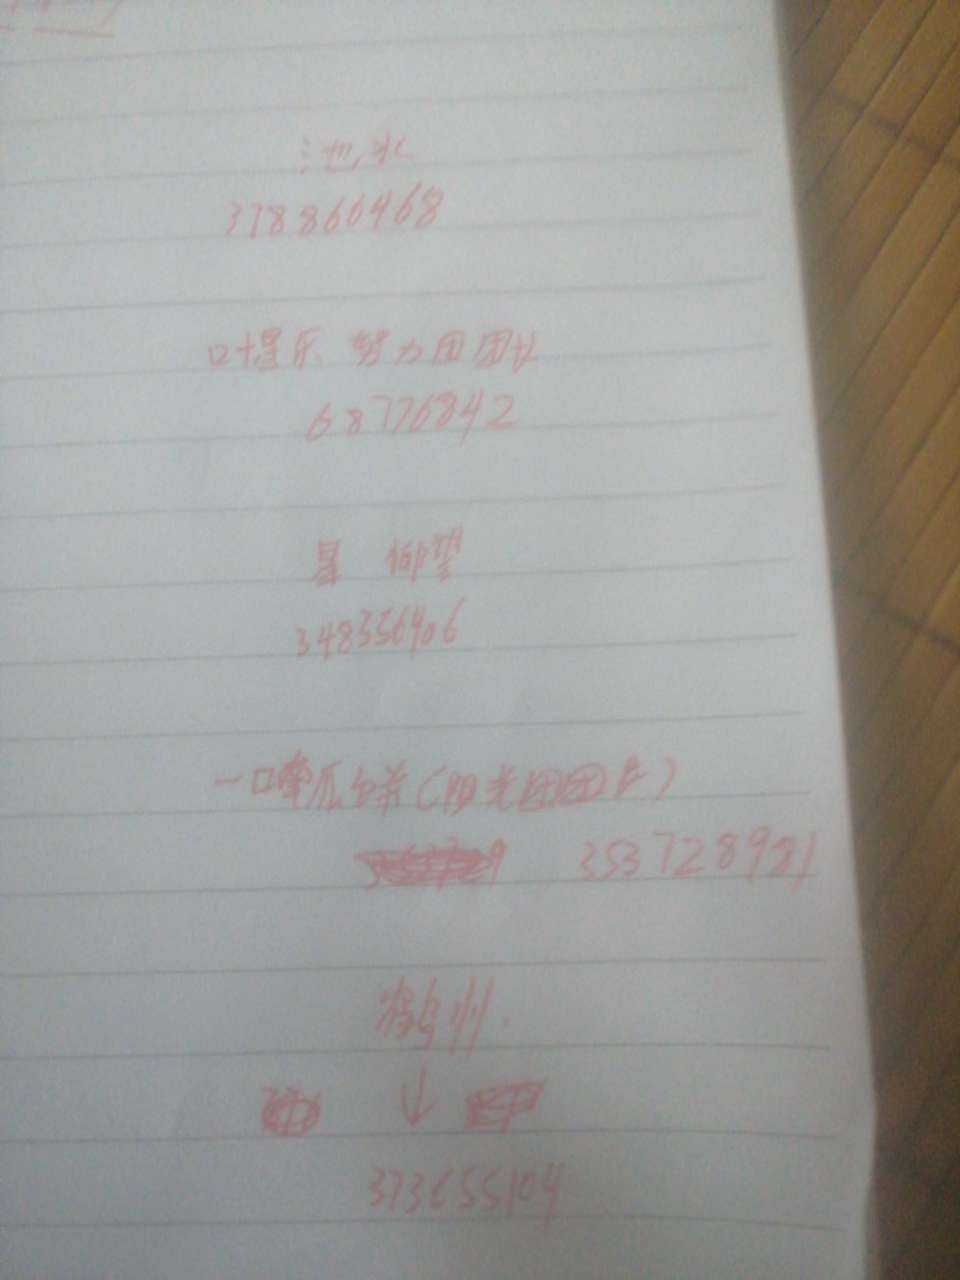 池水
378866468
叶星乐 努力团团长
68776842
星 仰望
348356406
一口 瓜 (阳光团团长)
353728981
州
↓
373655104